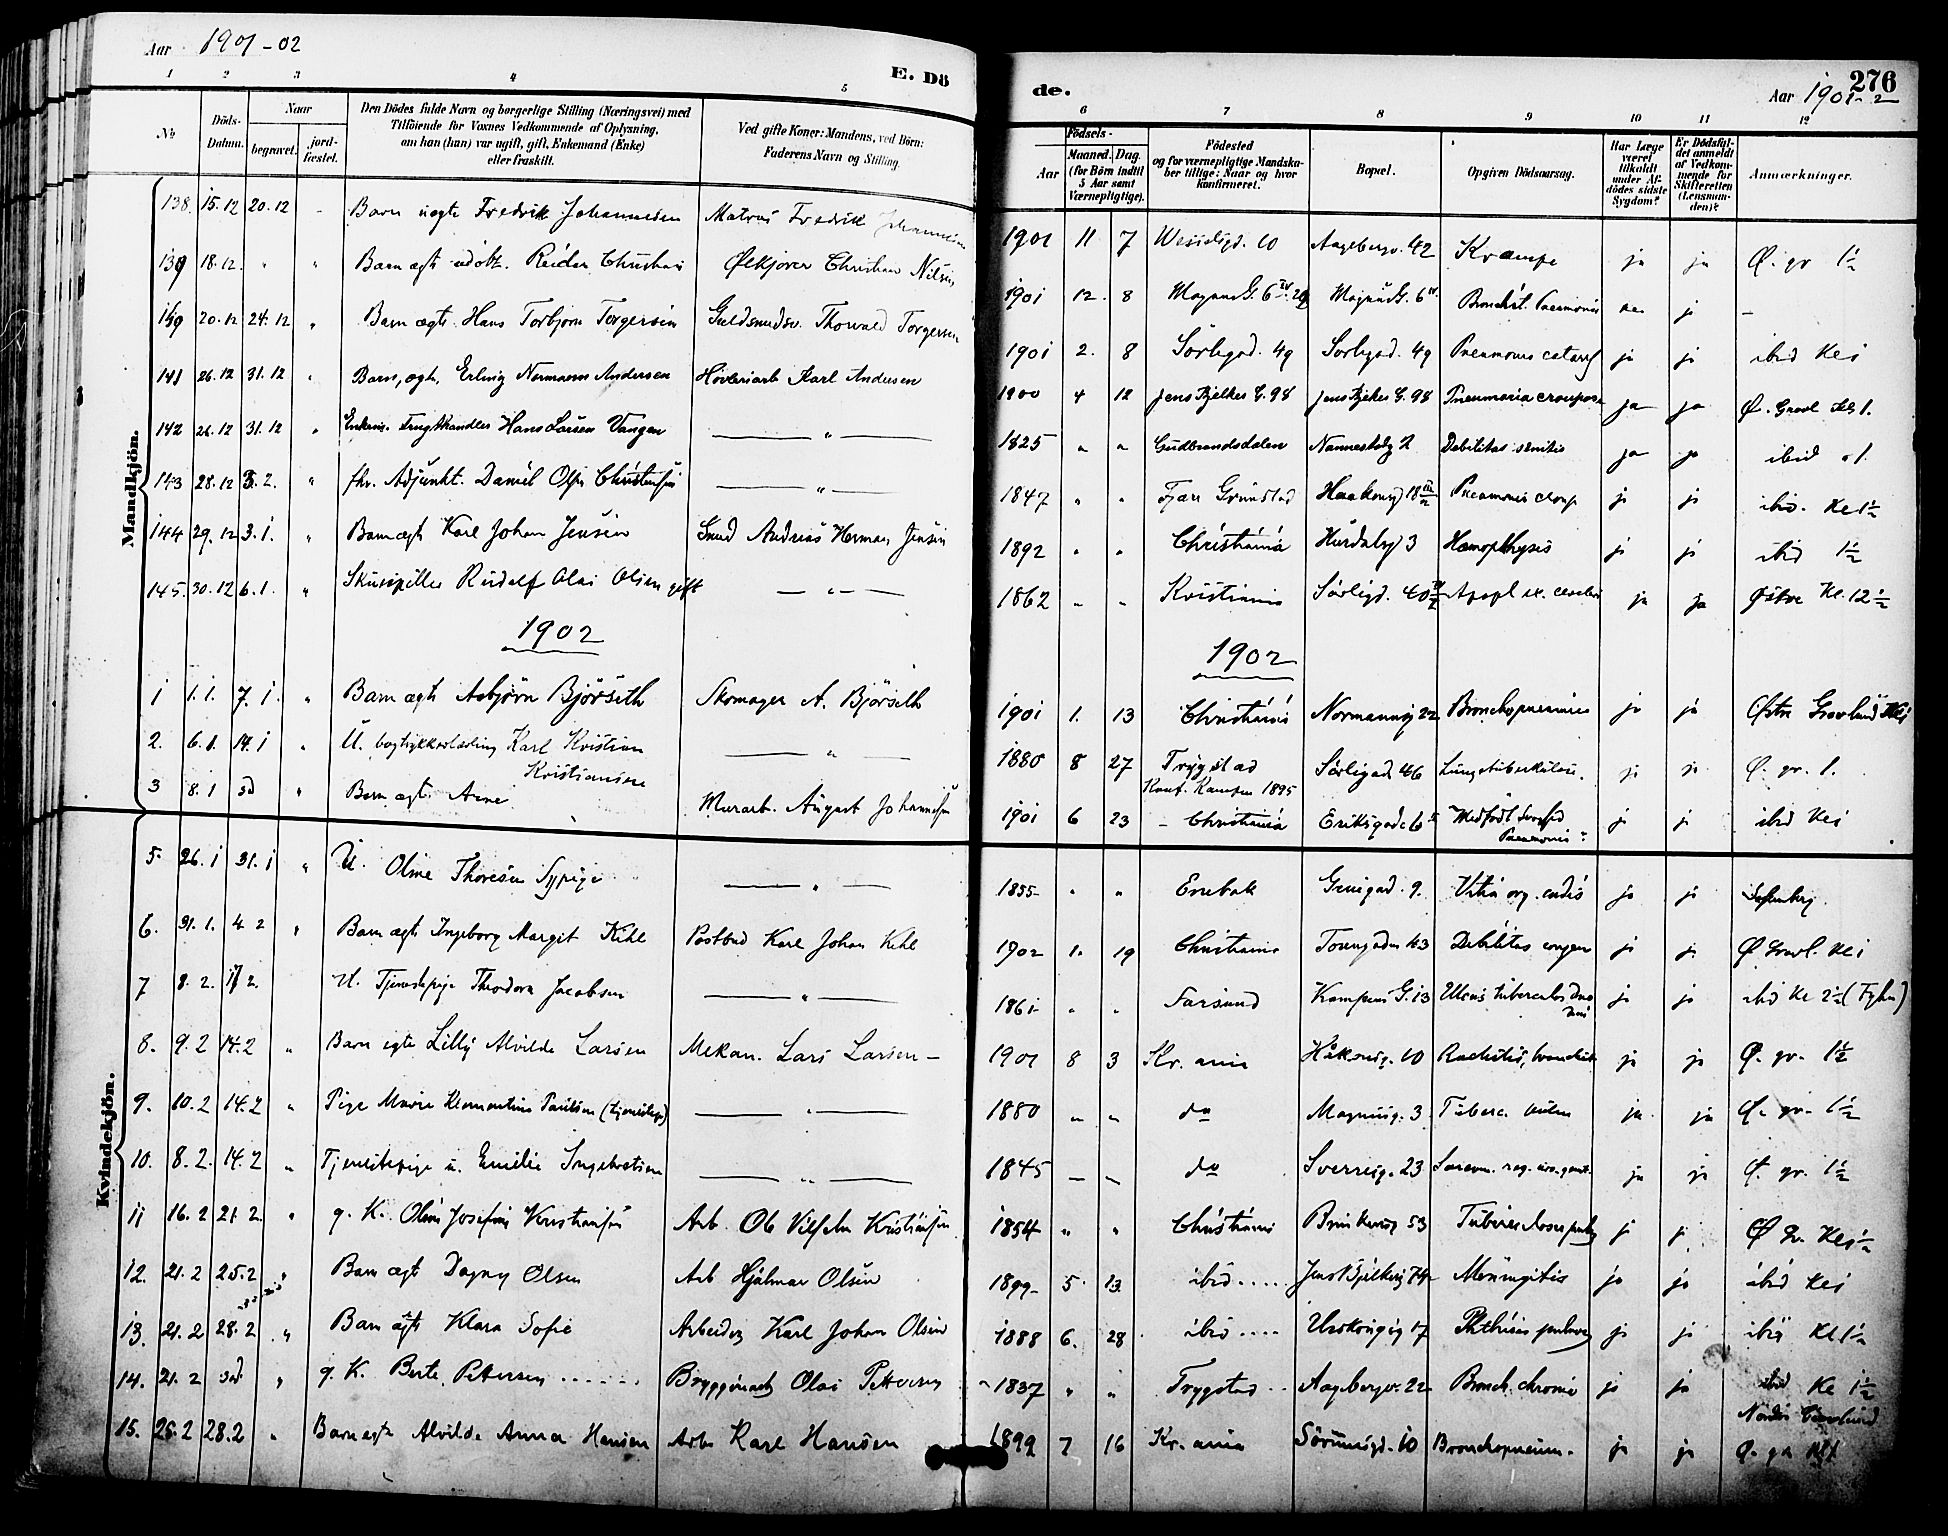 Aar 1901-02
E. Dö
de.
276
Aar 1901-2
1 2 3 4 5 6 7 8 9 10 11 12
No
Döds-Datum.
Naar
begravet.
jord-fæstet.
Den Dödes fulde Navn og borgerlige Stilling (Næringsvei) med
Tilföiende for Voxnes Vedkommende af Oplysning,
om han (hun) var ugift, gift, Enkemand (Enke)
eller fraskilt.
Ved gifte Koner: Mandens, ved Börn:
Faderens Navn og Stilling.
Födsels-
Aar
Maaned. Dag.
(for Börn indtil
5 Aar samt
Værnepligtige).
Födested
og for værnepligtige Mandska-
ber tillige: Naar og hvor
konfirmeret.
Bopæl.
Opgiven Dödsaarsag.
Har Læge
været
tilkaldt
under Af-
dödes sidste
Sygdom?
Er Dödsfal-
det anmeldt
af Vedkom-
mende for
Skifteretten
(Lensman-
den)?
Anmærkninger.
Mandkjön.
138. 15.12 20.12 Barn uegte Fredrik Johannesen Matros Fredrik Johannesen 1901 11 7 10 Aagebergv. 42 Krampe ja ja Ø. gr 1½
139 18.12 " " Barn ægt. udöbt. Reidar Christian Ølkjører Christian Nilsen 1901 12. 8 ja
20.12 24.12 " Barn ægte Hans Torbjørn Torgersen Guldsmedsv. Thorvald Torgersen 1901 2. 8 Sørligad. 49 Sørligad. 49 Pneumonia ja ja ibid Kl 1
141 26.12 31.12 Barn, ægte, Erling Normann Andersen Høvleriarb Karl Andersen 1900 4 12 Jens Bjelkes G. 98 Jens Bjelkes G. 98 Pneumonia crouposa ja ja Ø. Gravl Kl 1.
142 26.12 31.12 " Enkem. Frugthandler Hans Larsen Vangen — " — 1825 " " Gudbrandsdalen Nannestadg 2 Debilitas senilis ja ja ibid " 1.
143 28.12 3.2. " fhv. Adjunkt. Daniel Olsen Christensen — " — 1847 " " Grimstad Haakonsg 18 Pneumonia croup ja ja ibid. Kl 1½
144 29.12 3.1. " Barn ægte Karl Johan Jensen Smed Andreas Herman Jensen 1892 " " Christiania Hurdalsg 3 Hæmopthysis ja ja ibid 1½
145. 30.12 6.1. " Skuespiller Rudolf Olai Olsen gift — " — 1862 " " Kristiania Sørligd. 40 Apopl. ex. cerebri ja ja Østre Kl. 12½
1902
1902
1 1.1. 7.1. " Barn ægte Asbjørn Bjørseth Skomager A. Bjørseth 1901 1. 13 Christiania Normannsg 22 Bronchopneumoni ja ja Østre Gravlund Kl 1
2. 6.1. 14.1 " U. bogtrykkerlærling Karl Kristian — " — 1880 8 27 Trygstad Sørligad 46 Lungetuberkulose. ja ja Ø. gr. 1.
Kristiansen Konf. Kampen 1895
3 8.1 sd " Barn ægte Arne Murarb. August Johannesen 1901 6 23 Christiania Eriksgade 6 Medfødt svaghed ja ja ibid Kl 1
Pneumonia?
Kvindekjön.
5. 26.1 31.1 " U. Oline Thoresen Sypige — " — 1855 " " Enebak 9. Vitia org. cordis ja ja
6. 31.1. 4.2 " Barn ægte Ingeborg Margit Kihl Postbud Karl Johan Kihl 1902 1. 19 Christiania 43 Debilitas congen ja ja Ø Gravl. Kl 1
7 8.2. " U. Tjenestepige Theodora Jacobsen — " — 1861 " " Farsund Kampens G. 13 Ulcus ja ja ibid Kl 2½ (Fyhn)
8. 9.2 14.2 " Barn egte Lilly Alvilde Larsen Mekan. Lars Larsen — 1901 8 3 Kr. ania Håkonsg. 10 Rachitis, bronchit ja ja Ø. gr. 1½
9. 10.2 14.2 " Pige Marie Klementine Paulsen (tjenestepi) — " — 1880 " " do Magnusg. 3 Tuberc. pulm ja ja Ø. gr. 1½
10. 8.2. 14.2 " Tjenestepige u. Emilie Ingebretsen — " — 1845 " " do Sverresg. 23 ja ja Ø. gr. 1½
11 16.2 21.2. " g. K. Oline Josefine Kristiansen Arb. Ole Vilhelm Kristiansen 1854 " " Christiania Brinkensg 53 Tuberculosis pulm ja ja Ø Gr. Kl 1½
12. 21.2 25.2 " Barn ægt Dagny Olsen Arb Hjalmar Olsen 1899 5 13 ibid ..... Jens Bjelkesg 74 Meningitis ja ja ibid Kl 1
13. 21.2 28.2 " Barn ægte Klara Sofie Arbeider Karl Johan Olsen 1888 6. 28 ibid .... 17 Phthisis pulmon ja ja ibid Kl 1½
14. 21.2 sd " g. K. Berte Pettersen ...... Bryggeriarb Olai Pettersen 1837 " " Trygstad .. Aagebergv. 22 Bronch. chronic ja ja ibid Kl 1½
Nordre Gravlund
15. 25.2 28.2 " Barn ægte Alvilde Anna Hansen Arb. Karl Hansen 1899 7 16 Kr. ania Sörumsgd. 10 Bronchopneum. ja ja Ø. gr. Kl 1